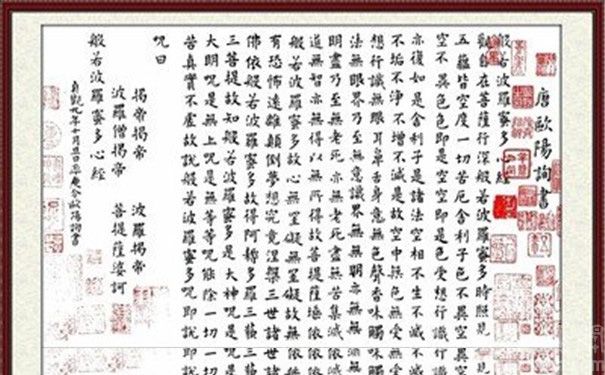 唐歐陽詢書
般若波羅蜜多心經
觀自在菩薩行深般若波羅蜜多時照見
五蘊皆空度一切苦厄舍利子色不異空異空
空不異色色即是空空即是色受想行識行識
亦復如是舍利子是諸法空相不生不滅不滅
不垢不淨不增不減是故空中無色無受無受
想行識無眼耳鼻舌身意無色聲香味觸味觸
法無眼界乃至無意識界無無明亦無
明盡乃至無老死亦無老死盡無苦集滅
道無智亦無得以無所得故菩提薩埵依依
般若波羅蜜多故心無罣礙無罣礙故無
有恐怖遠離顛倒夢想究竟涅槃三世諸世諸
佛依般若波羅蜜多故得阿耨多羅三藐三藐
三菩提故知般若波羅蜜多是大神呪是呪是
大明呪是無上呪是無等等呪能除一切一切
苦真實不虛故說般若波羅蜜多呪即說即說
呪曰
揭帝揭帝 波羅揭帝
波羅僧揭帝 菩提薩婆訶
般若波羅蜜多心經
貞觀九年十月旦日率更令歐陽詢書